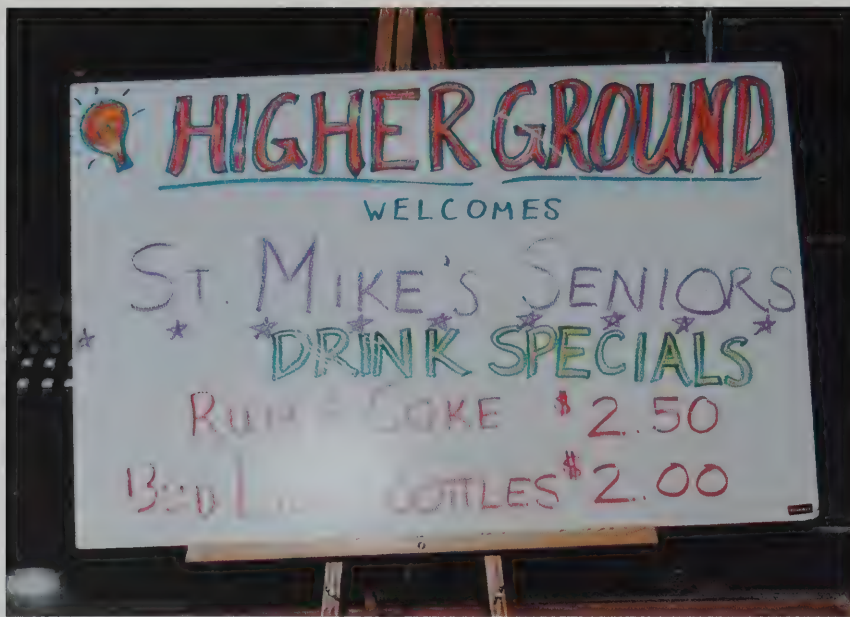 HIGHER GROUND
WELCOMES
ST. MIKE'S SENIORS
DRINK SPECIALS
RUM & COKE $2.50
BUD BOTTLES $2.00